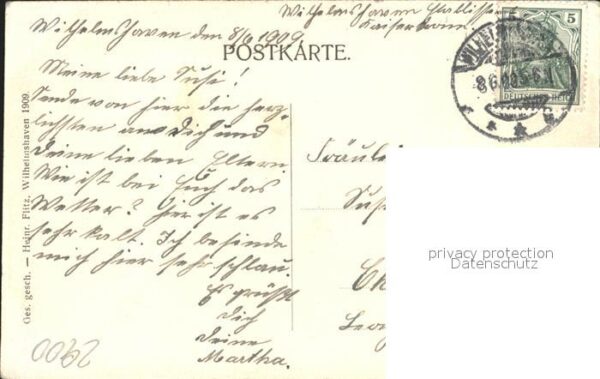 Wilhelmshaven Etablissem
Kaiserkrone
Wilhelmshaven den 8/6 1909.
POSTKARTE.
5
DEUTSCHES REICH
WILHELMSHAVEN
8.6.09.5-6
Meine liebe Susi!
Sende von hier die herz-
lichsten an Dich und
Deine lieben Eltern.
Wie ist bei Euch das
Wetter? hier ist es
sehr kalt. Ich befinde
mich hier sehr schlau.
Es grüßt
Dich
Deine
Martha.
Fräulein
Sus
Leo
Ges. gesch. — Heinr. Flitz, Wilhelmshaven 1909.
privacy protection
Datenschutz
2900